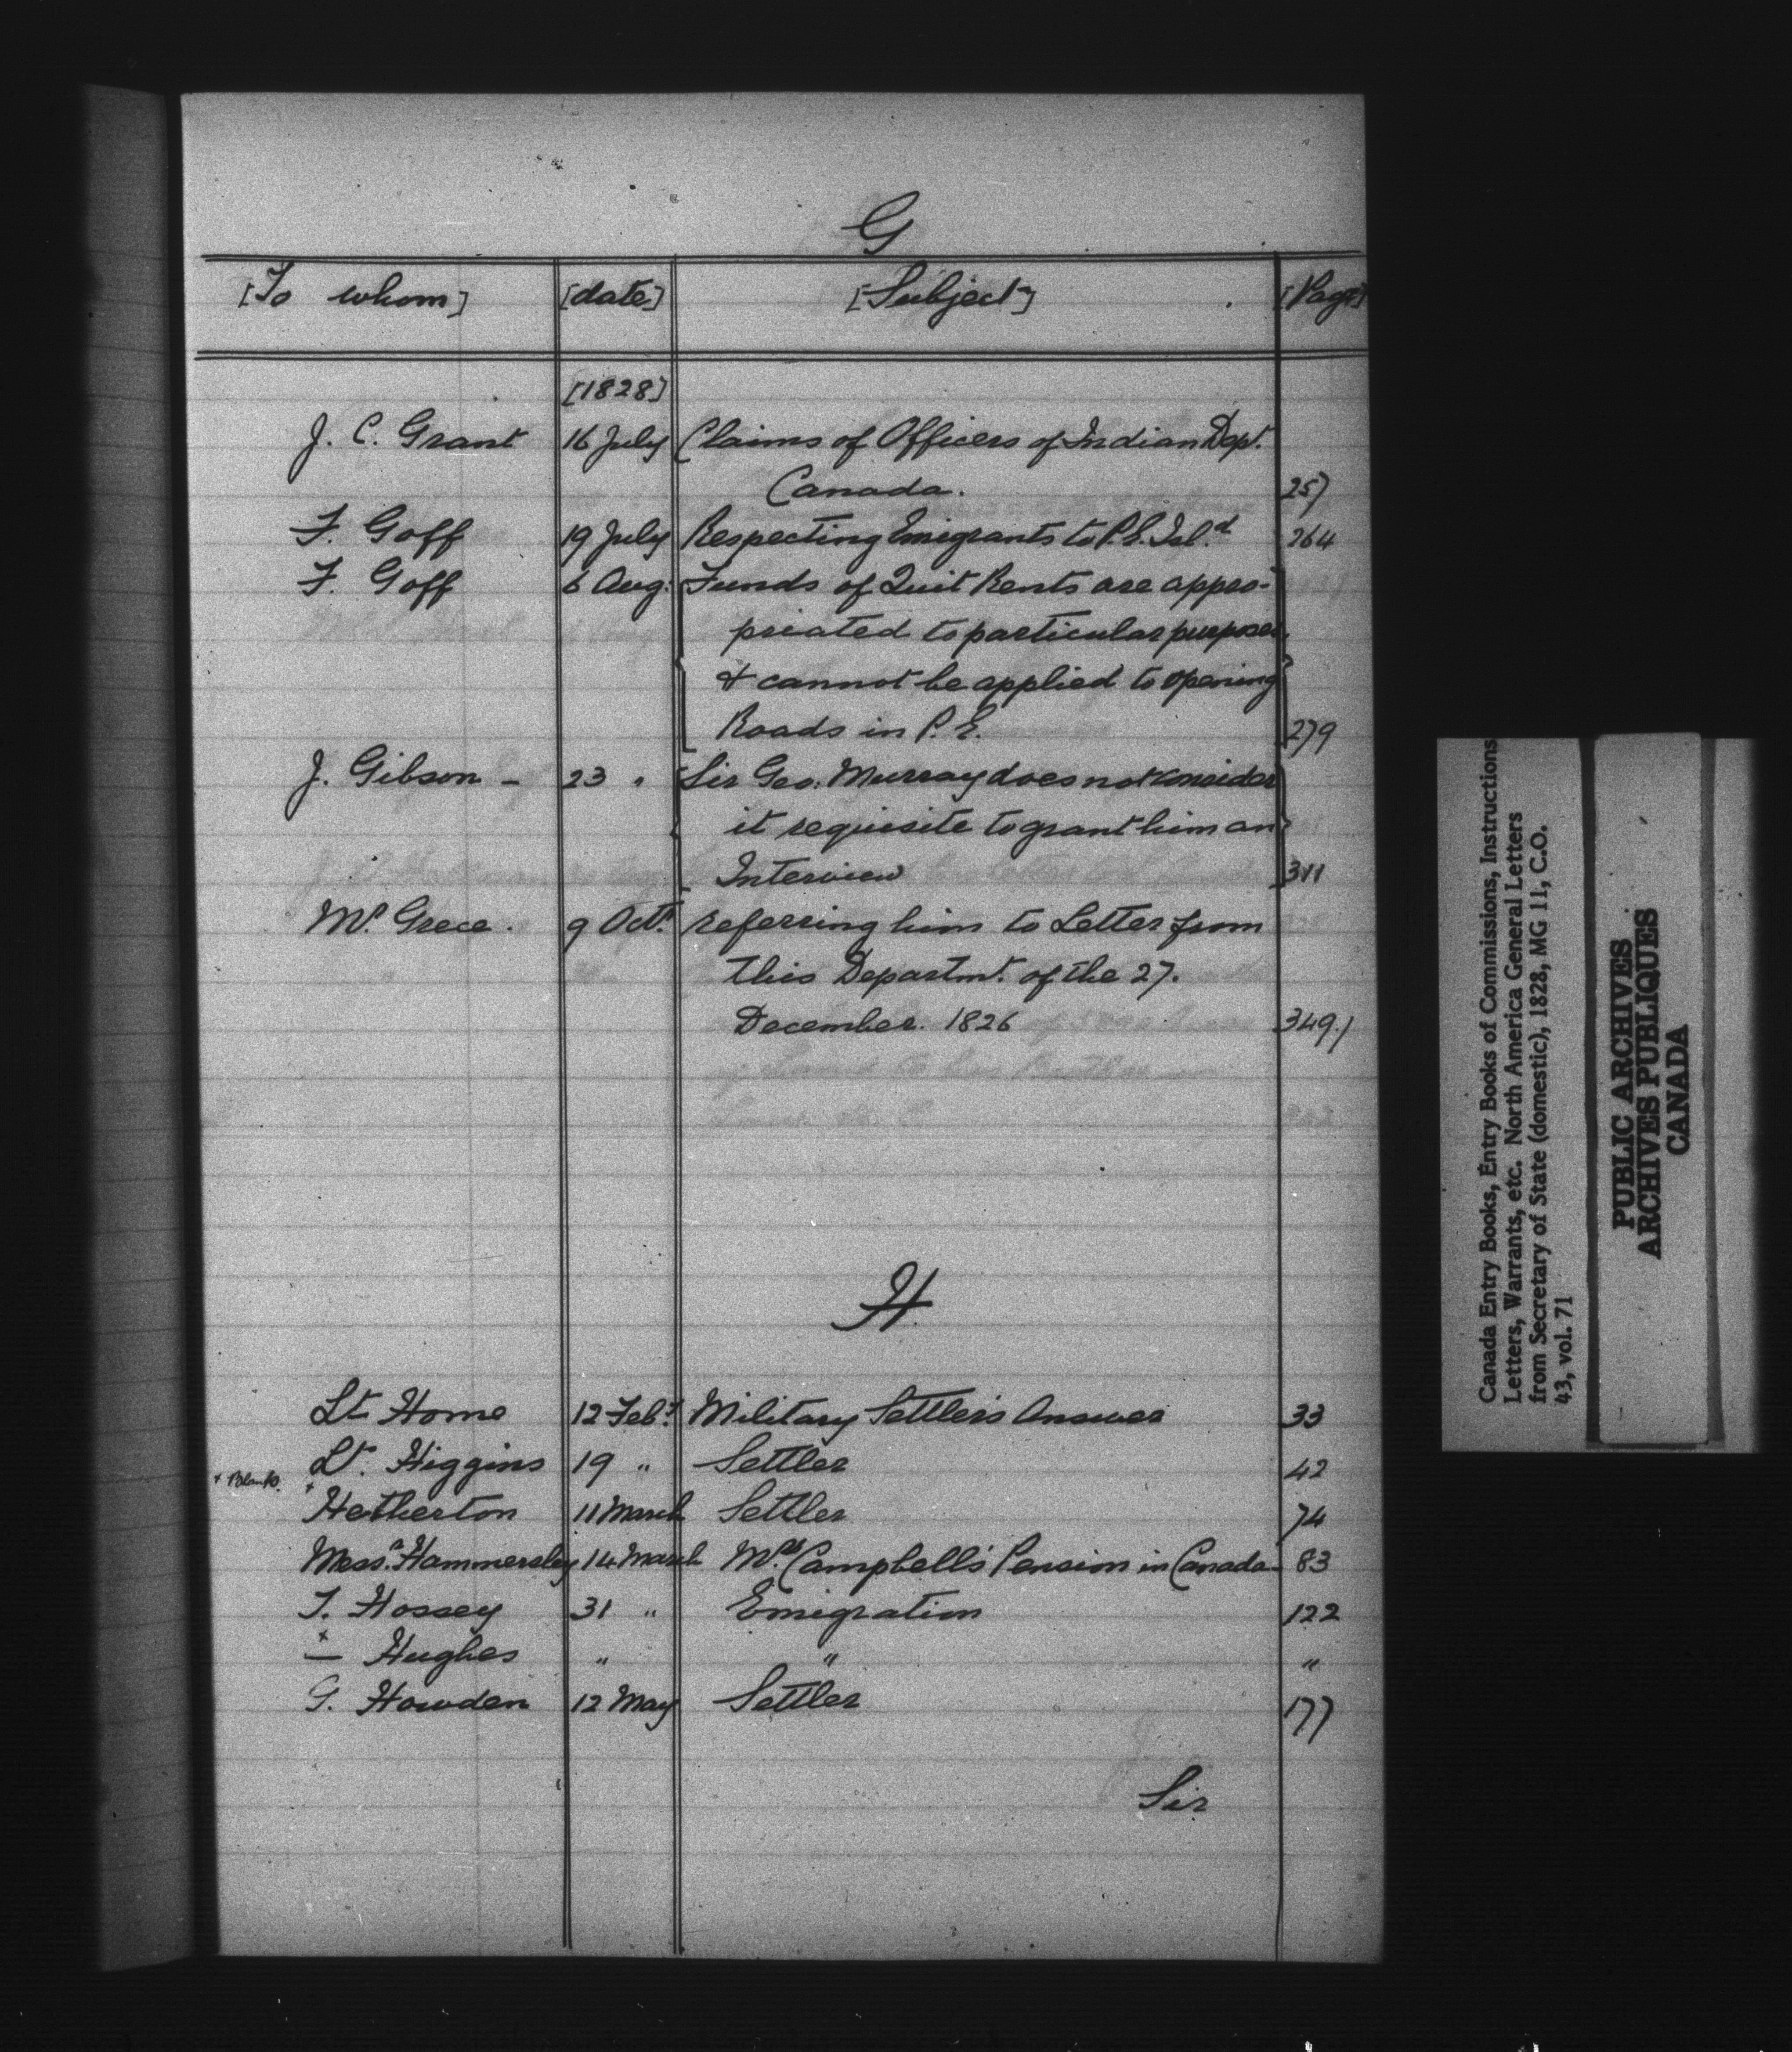 G
[To whom] [date] [Subject] [Page]
[1828]
J. C. Grant 16 July Claims of Officers of Indian Dept.
Canada. 257
F. Goff 19 July Respecting Emigrants to P.E. Isl.d 264
F. Goff 6 Aug: Funds of Quit Rents are appro-
priated to particular purposes,
& cannot be applied to opening
Roads in P. E. 279
J. Gibson - 23 " Sir Geo: Murray does not consider
it requisite to grant him an
Interview 311
Mr. Grece. 9 Oct. referring him to Letter from
this Departmt. of the 27.
December. 1826 349.
H
Lt. Home 12 Feby. Military Settlers Answer 33
Lt. Higgins 19 " Settler 42
+ Blank. +
Hetherton 11 March Settler 74
Messrs. Hammersley 14 March Mrs. Campbell's Pension in Canada 83
T. Hossey 31 " Emigration 122
+
— Hughes " " "
G. Howden 12 May Settler 177
Sir
Canada Entry Books, Entry Books of Commissions, Instructions
Letters, Warrants, etc. North America General Letters
from Secretary of State (domestic), 1828, MG 11, C.O.
43, vol. 71
PUBLIC ARCHIVES
ARCHIVES PUBLIQUES
CANADA